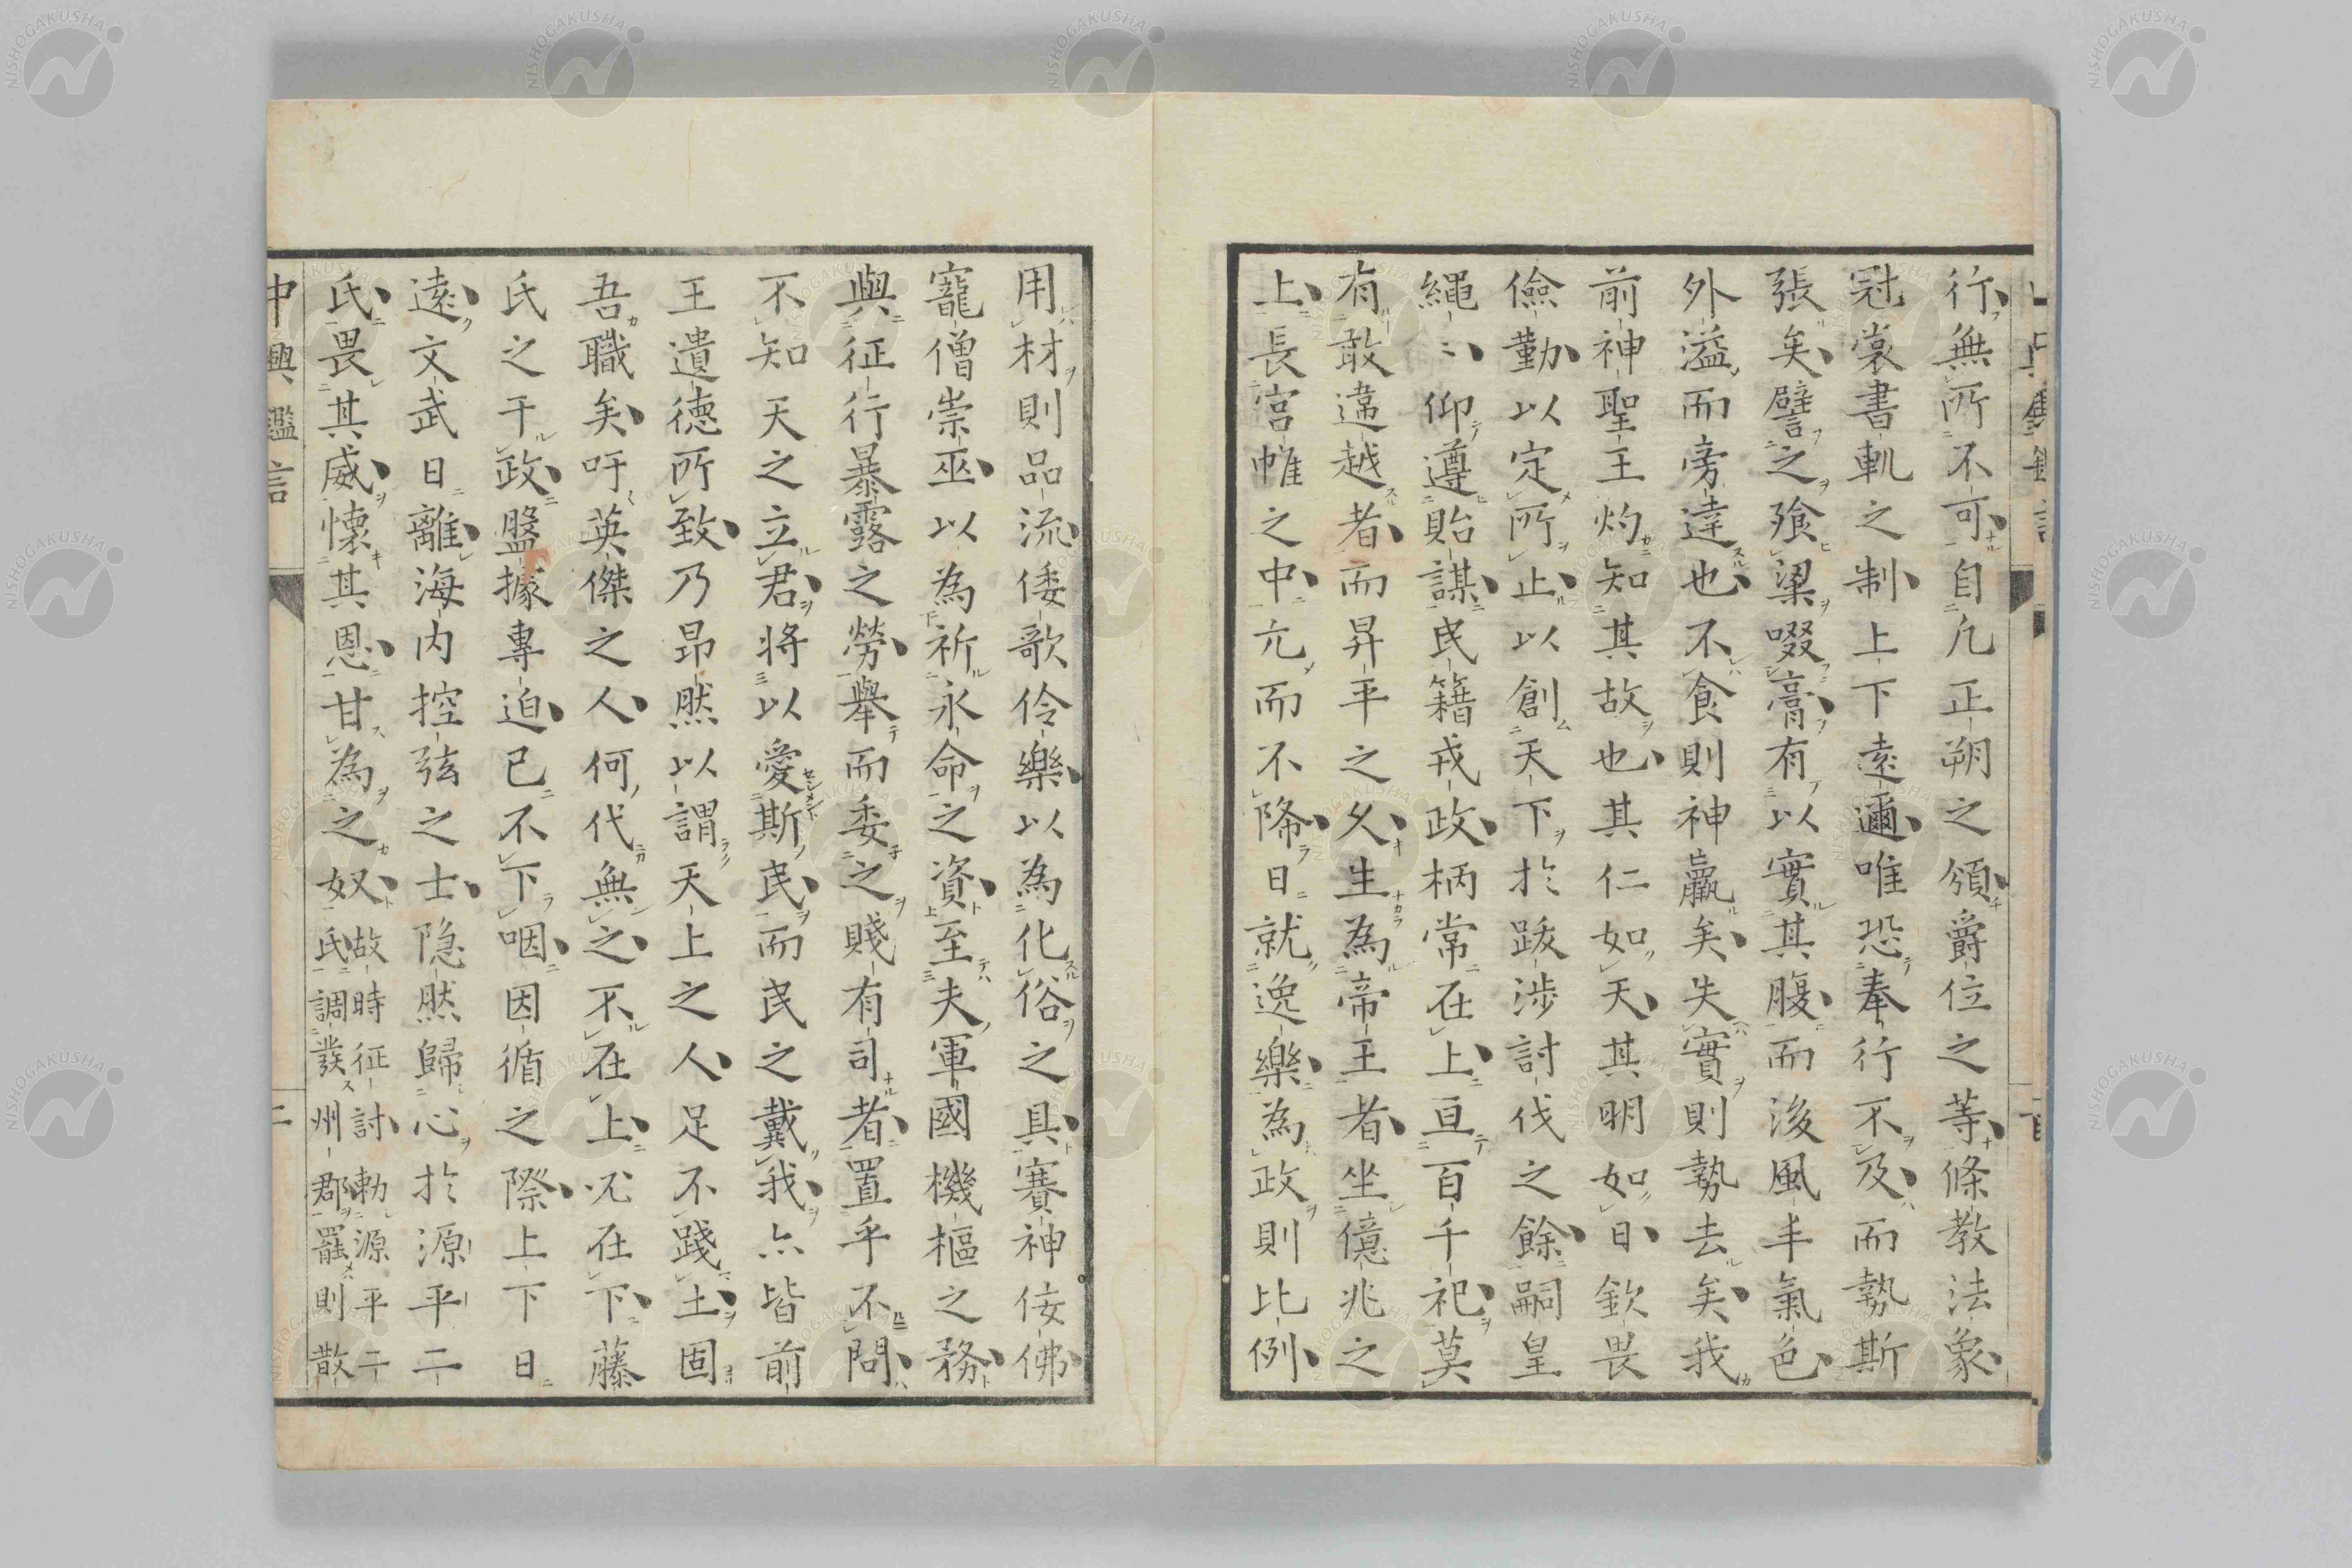 行無所不可自凡正朔之頒爵位之等條教法象
冠裳書軌之制上下遠邇唯恐奉行不及而勢斯
張矣譬之飡粱啜膏有以實其腹而後風丰氣色
外溢而旁達也不食則神羸矣失實則勢去矣我
前神聖王灼知其故也其仁如天其明如日欽畏
儉勤以定所止以創天下於跋涉討伐之餘嗣皇
繩〻仰遵貽謀民籍戎政柄常在上亘百千祀莫
有敢違越者而昇平之久生為帝王者坐億兆之
上長宮帷之中亢而不降日就逸樂為政則比例
用材則品流倭歌伶樂以為化俗之具賽神佞佛
寵僧崇巫以為祈永命之資至夫軍國機樞之務
與征行暴露之勞舉而委之賤有司者置乎不問
不知天之立君將以愛斯民而民之戴我亦皆前
王遺德所致乃昂然以謂天上之人足不踐土固
吾職矣吁英傑之人何代無之不在上必在下藤
氏之干政盤據專迫已不下咽因循之際上下日
遠文武日離海內控弦之士隱然歸心於源平二
氏畏其威懷其恩甘為之奴
故時征討勅源平二
氏調發州郡罷則散
中興鑑言
二
NISHOGAKUSHA